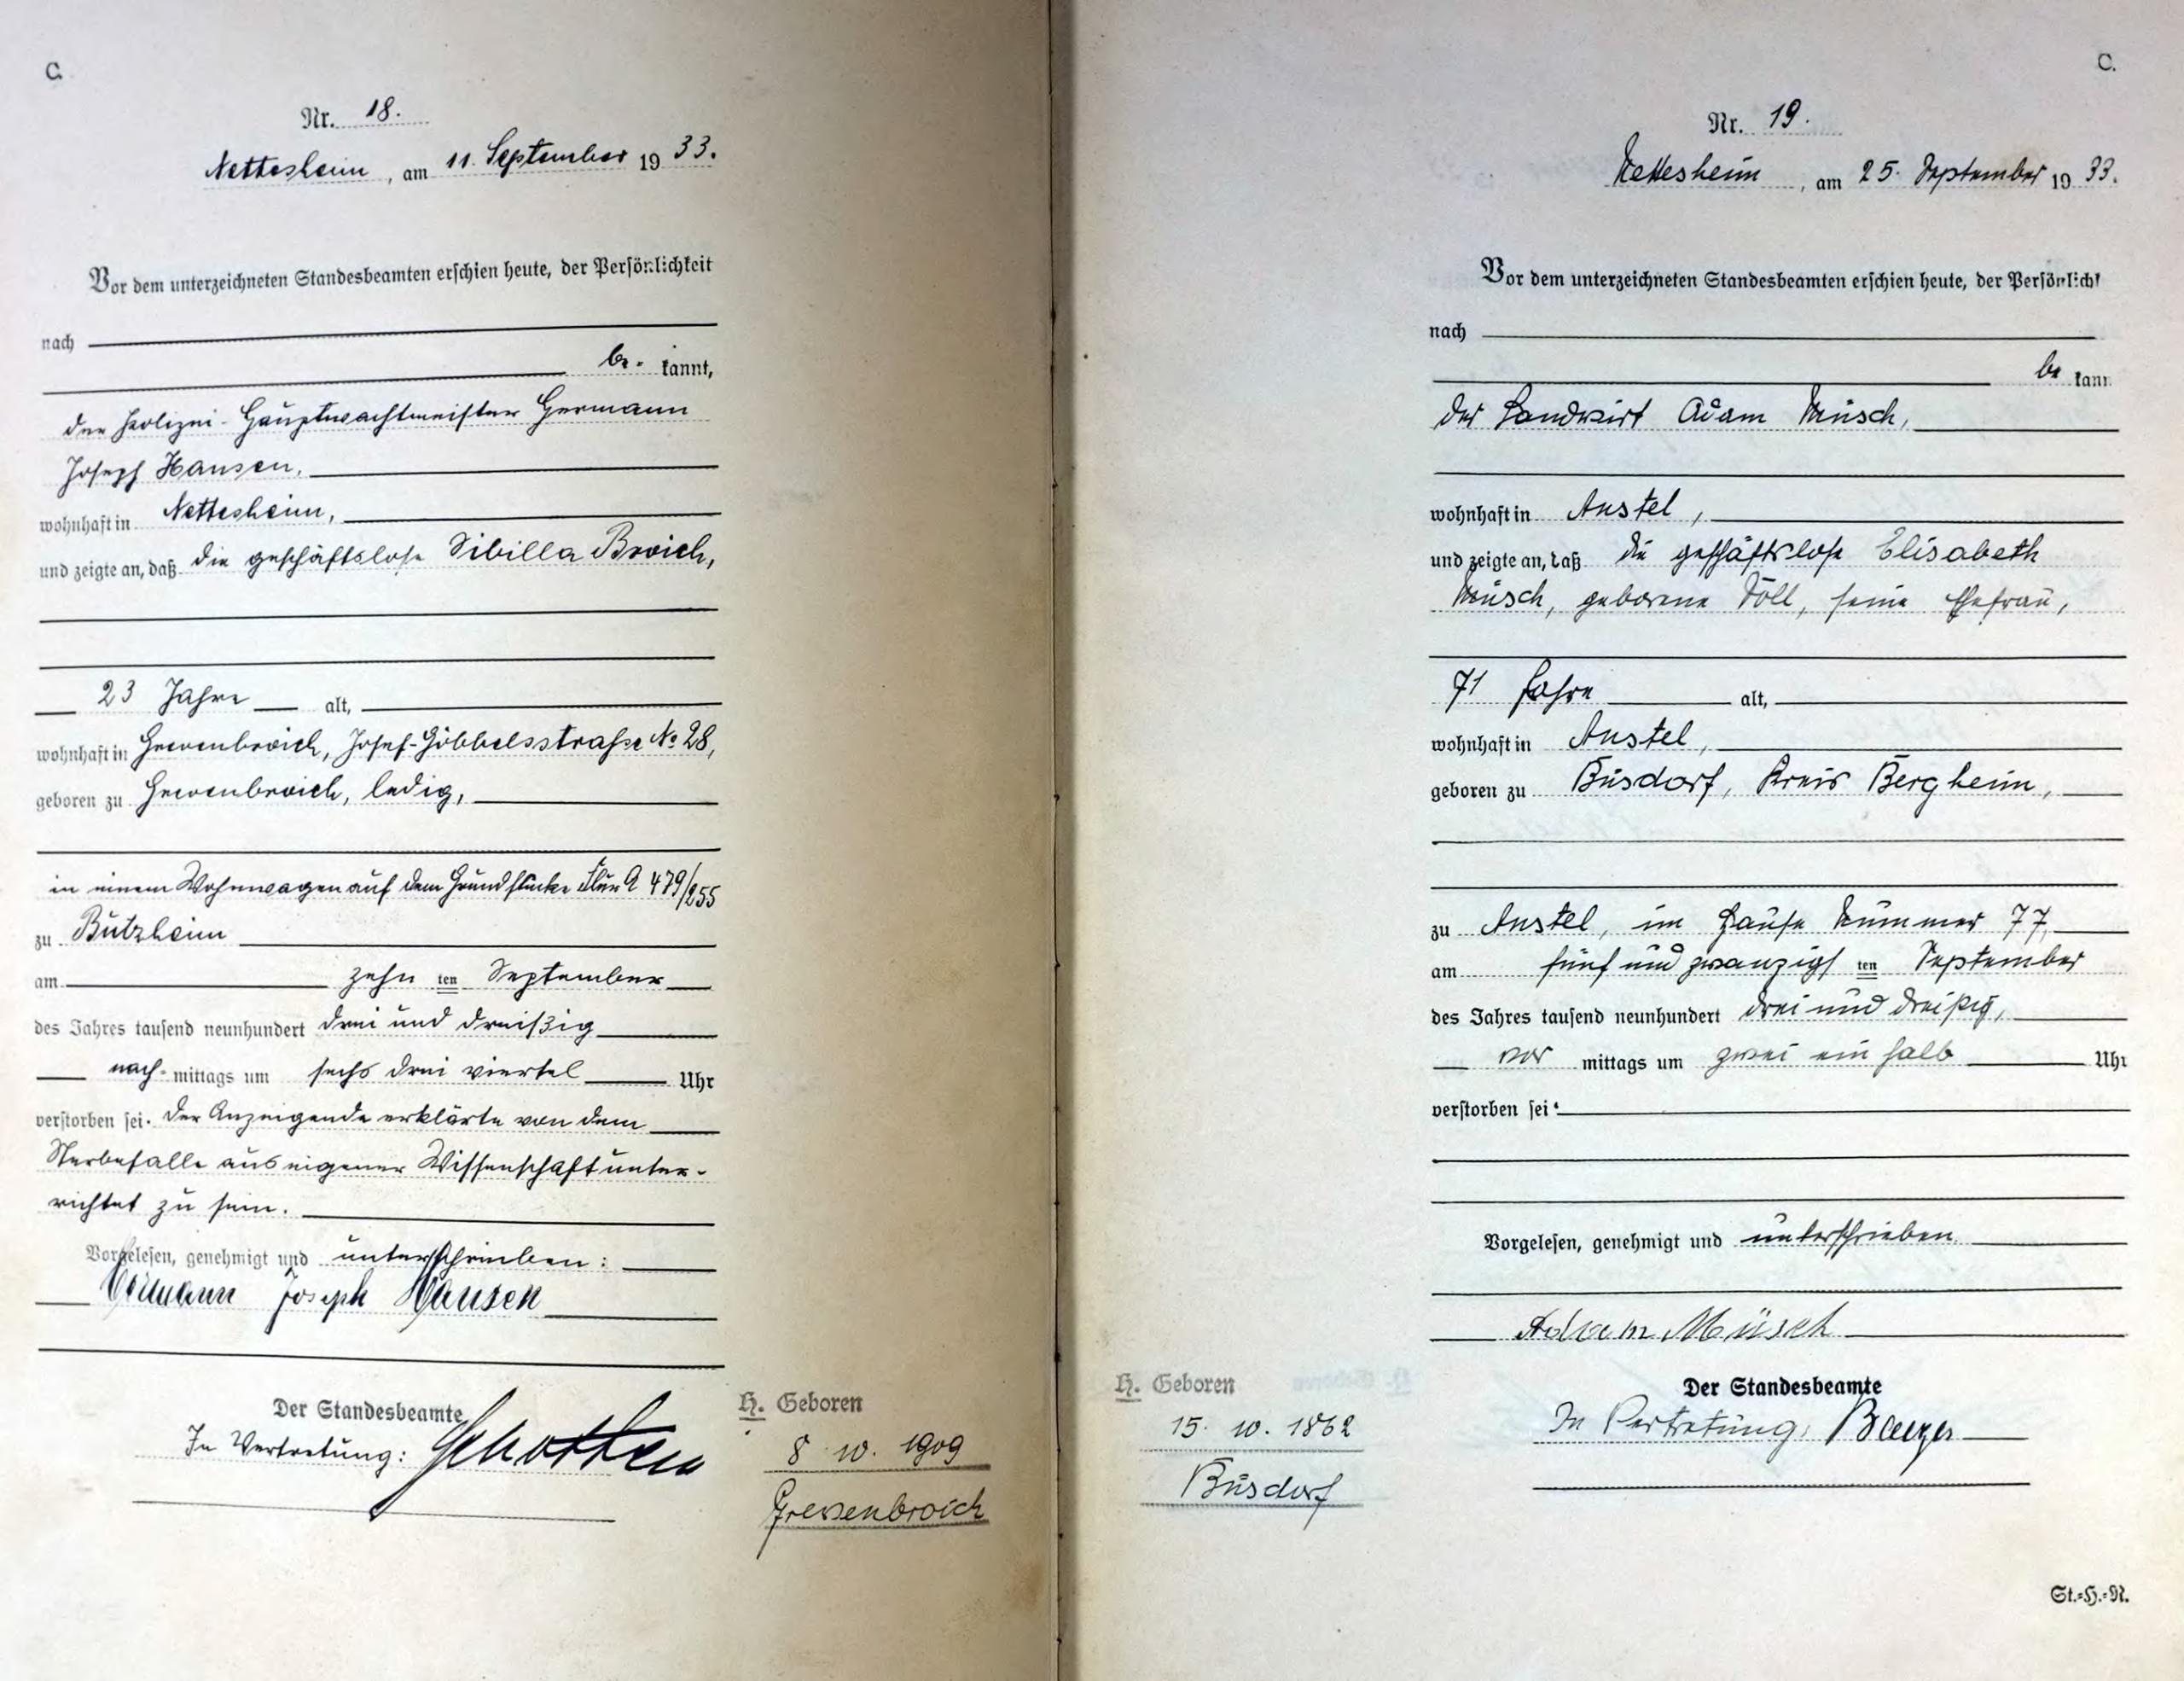 C.
Nr. 18.
Nettesheim, am 11. September 1933.
Vor dem unterzeichneten Standesbeamten erschien heute, der Persönlichkeit
nach
be- kannt,
der Polizei-Hauptwachtmeister Hermann
Joseph Hansen,
wohnhaft in Nettesheim,
und zeigte an, daß die geschäftslose Sibilla Broich,
23 Jahre alt,
wohnhaft in Grevenbroich, Josef-Göbbelsstraße No 28,
geboren zu Grevenbroich, ledig,
in einem Wohnwagen auf dem Grundstücke Flur A 479/255
zu Butzheim
am zehn ten September
des Jahres tausend neunhundert drei und dreißig
nach- mittags um sechs drei viertel Uhr
verstorben sei. Der Anzeigende erklärte von dem
Sterbefalle aus eigener Wissenschaft unter-
richtet zu sein.
Vorgelesen, genehmigt und unterschrieben:
Hermann Joseph Hansen
Der Standesbeamte
In Vertretung: Schotten
H. Geboren
8. 10. 1909
Grevenbroich
C.
Nr. 19.
Nettesheim, am 25. September 1933.
Vor dem unterzeichneten Standesbeamten erschien heute, der Persönlich
nach
be kann
der Landwirt Adam Müsch,
wohnhaft in Anstel,
und zeigte an, daß die geschäftslose Elisabeth
Müsch, geborene Döll, seine Ehefrau,
71 Jahre alt,
wohnhaft in Anstel,
geboren zu Büsdorf, Kreis Bergheim,
zu Anstel, im Hause Nummer 77,
am fünf und zwanzigs ten September
des Jahres tausend neunhundert drei und dreißig,
vor mittags um zwei ein halb Uhr
verstorben sei.
Vorgelesen, genehmigt und unterschrieben.
Adam Müsch
Der Standesbeamte
In Vertretung:
H. Geboren
15. 10. 1862
Büsdorf
St.-H.-N.